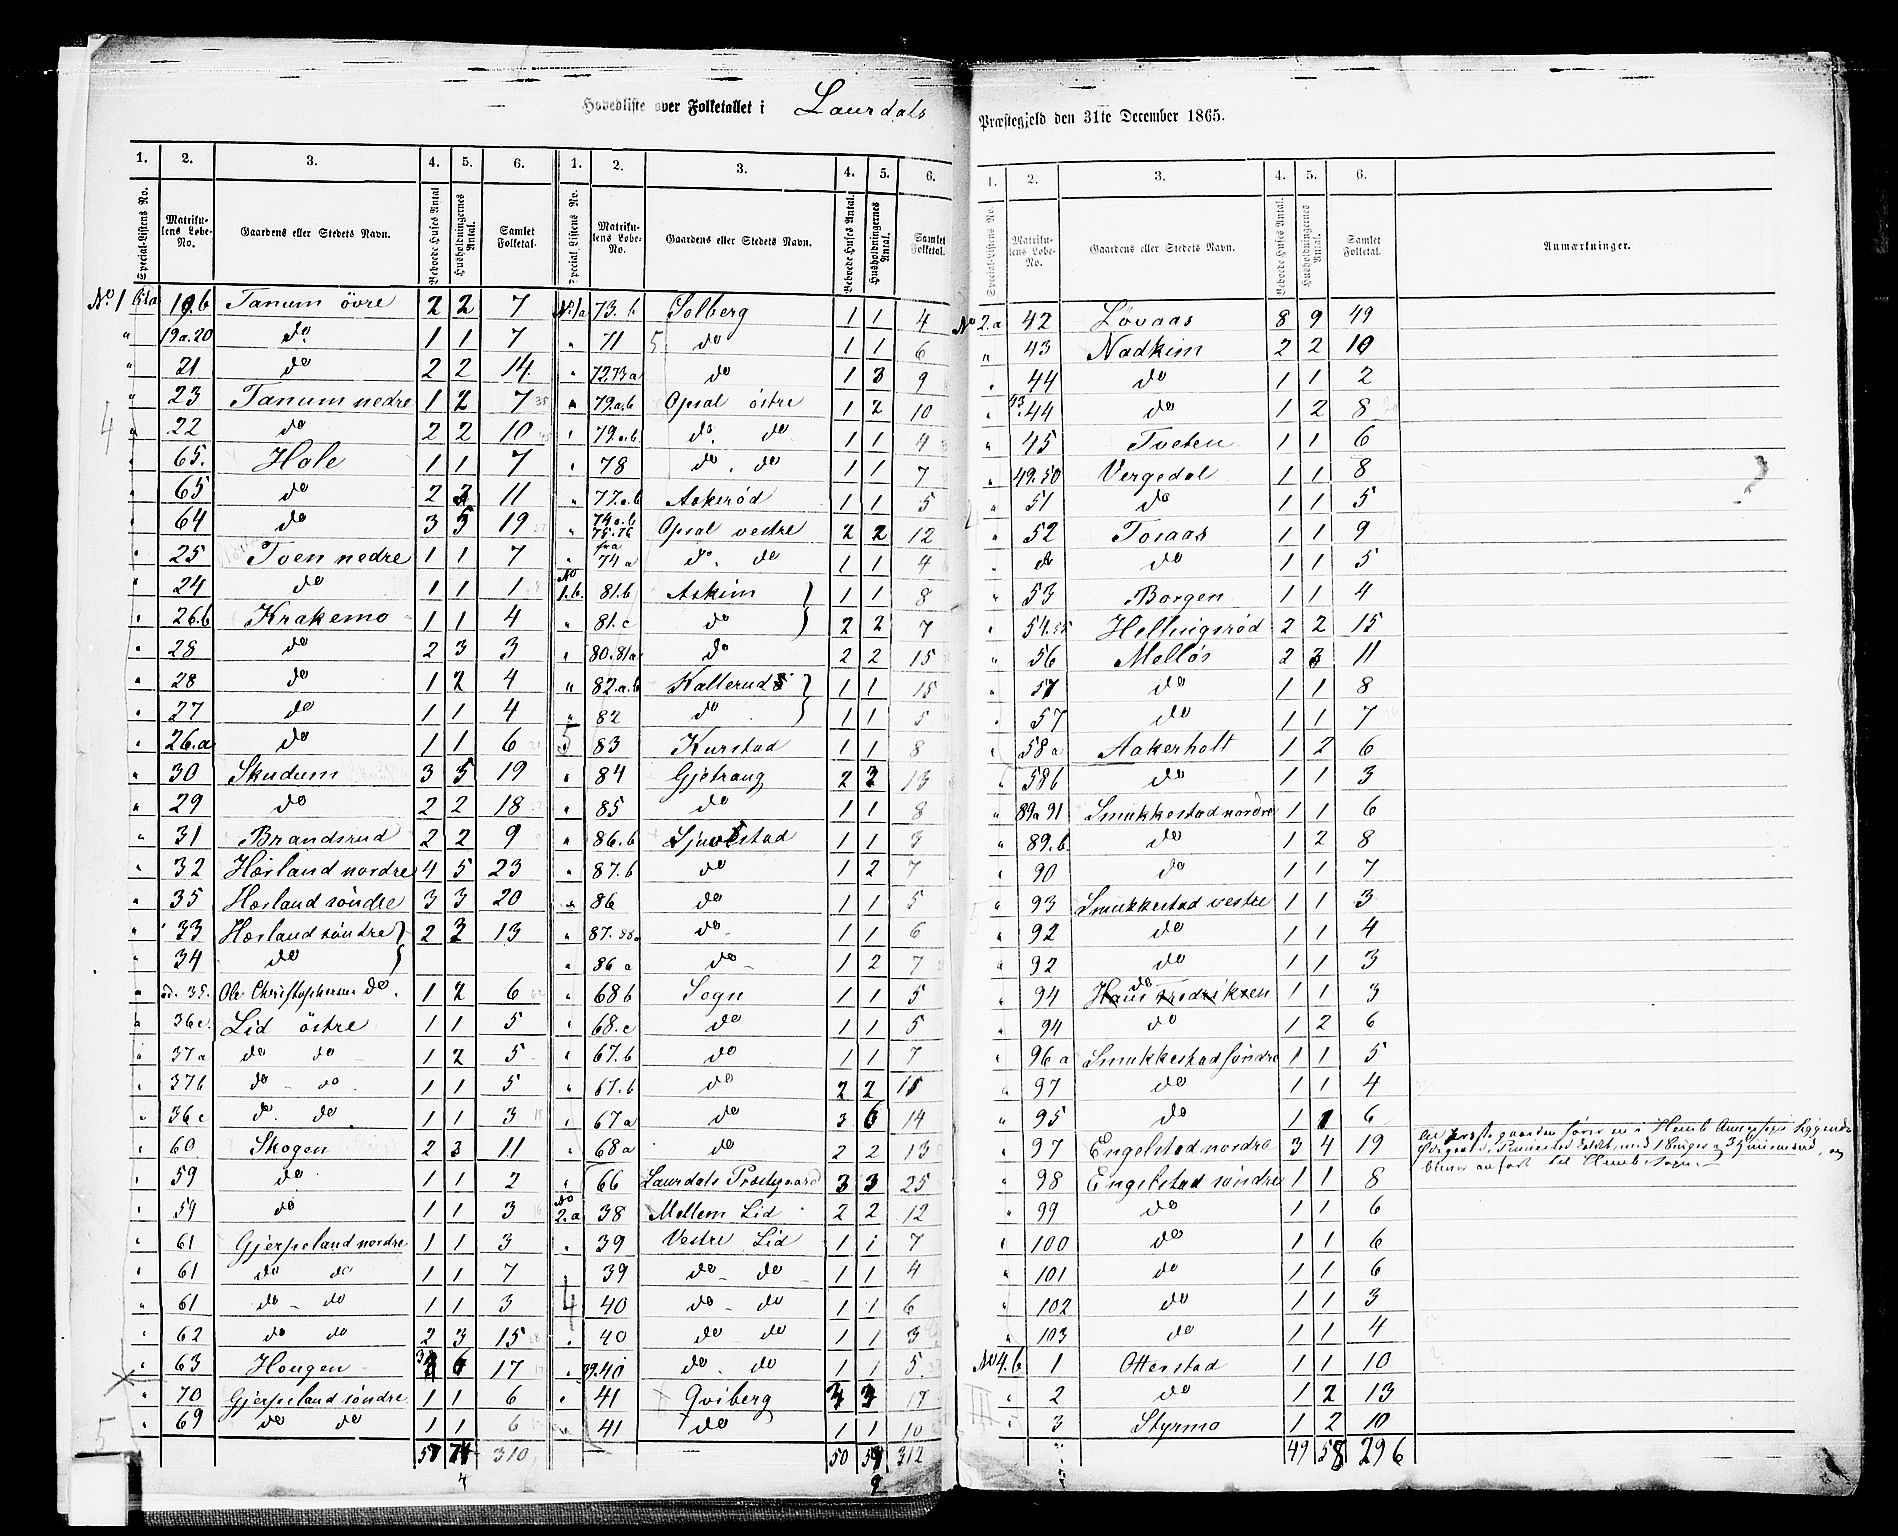 Hovedliste over Folketallet i Laurdals Præstegjeld den 31te December 1865.
1. 2. 3. 4. 5. 6. 1. 2. 3. 4. 5. 6.
Special-Listens No. Matrikulens Løbe-No. Gaardens eller Stedets Navn. Beboede Huses Antal Husholdningernes Antal. Samlet Folketal.
No 1a 19.b Tanum övre 2 2 7
" 19a.20 do 1 1 7
" 21 do 2 2 14
" 23 Tanum nedre 1 2 7
" 22 do 2 2 10
" 65. Hale 1 1 7
" 65 do 2 2 11
" 64 do 3 5 19
" 25 Tven nedre 1 1 7
" 24 do 1 1 1
" 26.b Krakemo 1 1 4
" 28 do 2 3 3
" 28 do 1 2 4
" 27 do 1 1 4
" 26.a do 1 1 6
" 30 Skudum 3 5 19
" 29 do 2 2 18
" 31 Brandsrud 2 2 9
" 32 Hørland nordre 4 5 23
" 35 Hørland söndre 3 3 20
" 33 Hørland söndre 2 3 13
" 34 do
" ad. 35. Ole Christophersen do. 1 2 6
" 36c. Lid östre 1 1 5
" 37a do do 1 2 5
" 37b do - do 1 1 5
" 36c do. do 1 1 3
" 60 Skogen 2 3 11
" 59 do 1 1 2
" 59 do 1 1 3
" 61 Gjerpeland nordre 1 1 3
" 61 do do 1 1 7
" 61 do - do 1 1 3
" 62 do do 2 3 15
" 63 Hougen 6 17
" 70 Gjerpeland söndre 1 1 6
" 69 do do 1 1 6
57 74 310
No. 1a 73.b Solberg 1 1 4
" 71 do 1 1 6
" 72.73a do 1 3 9
" 79.a.b Opsal östre 1 2 10
" 79.a.b. do. do 1 1 4
" 78 do. do 1 1 7
" 77.a.b Aakerød 1 1 5
" 74a.b 75.76 Opsal vestre 2 2 12
" fra 74a do. do 1 1 4
No 1.b. 81.b Askim 1 1 8
" 81.c do 2 2 7
" 80.81a do 2 2 15
" 82.a.b Kallerud 1 1 15
" 82 do 1 1 5
" 83 Kurstad 1 1 8
" 84 Gjetrang 2 2 13
" 85 do 1 1 8
" 86.b Sjuestad 1 1 3
" 87.b do 1 2 7
" 86 do 1 1 5
" 87.88a do 1 1 6
" 86a do 1 2 7
" 68b Sogn 1 1 5
" 68.c do 1 1 5
" 67.b do 1 1 7
" 67.b do 2 2 15
" 67a do 3 6 14
" 68a do 2 2 13
" 66 Laurdals Præstegaard 3 3 25
No 2.a 38 Mellem Lid 2 2 12
" 39 Vestre Lid 1 1 7
" 39 do - do 1 1 4
" 40 do - do 1 1 6
" 40 do do 1 1 3
39.40 do. do 1 1 5
" 41 Qviberg 3 3 17
" 41 do 1 1 10
50 59 312
1. 2. 3. 4. 5. 6.
Special-Listens No. Matrikulens Løbe-No. Gaardens eller Stedets Navn. Beboede Huses Antal. Husholdningernes Antal. Samlet Folketal. Anmærkninger.
No 2.a 42 Lövaas 8 9 49
" 43 Nadkim 2 2 10
" 44 do 1 1 2
" 43.44 do 1 2 8
" 45 Tveten 1 1 6
" 49.50 Vergedal 1 1 8
" 51 do 1 1 5
" 52 Toraas 1 1 9
" do do 1 1 5
" 53 Borgen 1 1 4
" 54.55 Hellingsrød 2 2 15
" 56 Melløs 2 3 11
" 57 do 1 1 8
" 57 do 1 1 7
" 58a Aakerholt 1 2 6
" 58b do 1 1 3
" 89a 91 Smukkestad nordre 1 1 6
" 89.b. do 1 2 8
" 90 do 1 1 7
" 93 Smukkestad vestre 1 1 3
" 92 do 1 1 4
" 92 do 1 1 3
" 94 Hans Fredriksen do 1 1 3
" 94 do 1 2 6
" 96a Smukkestad söndre 1 1 5
" 97 do 1 1 4
" 95 do 1 1 6
" 97 Engelstad nordre 3 4 19
" 98 Engelstad söndre 1 1 8
" 99 do 1 1 6
" 100 do 1 1 6
" 101 do 1 1 6
" 102 do 1 1 3
" 103 do 1 1 4
No 4.b 1 Otterstad 1 1 10
" 2 do 1 2 13
" 3 Styrmo 1 2 10
49 58 296